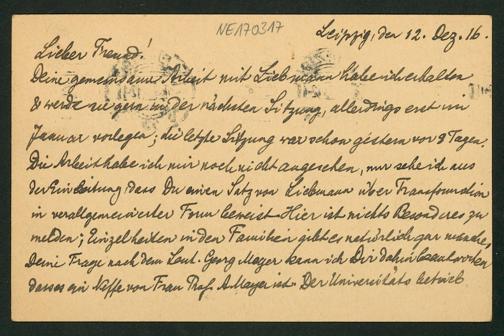 NE170317
Leipzig, den 12. Dez. 16.
Lieber Freund!
Deine gemeinsame Arbeit mit Liebmann habe ich erhalten
& werde sie gern in der nächsten Sitzung, allerdings erst im
Januar vorlegen; die letzte Sitzung war schon gestern vor 8 Tagen.
Die Arbeit habe ich mir noch nicht angesehen, nur sehe ich aus
der Einleitung, dass Du einen Satz von Liebmann über Transformation
in verallgemeinerter Form beweist. Hier ist nichts Besonderes zu
melden; Einzelheiten in den Familien gibt es natürlich gar manche,
Deine Frage nach dem Leut. Georg Mayer kann ich Dir dahin beantworten
dass es ein Neffe von Frau Prof. A. Mayer ist. Der Universitäts betrieb